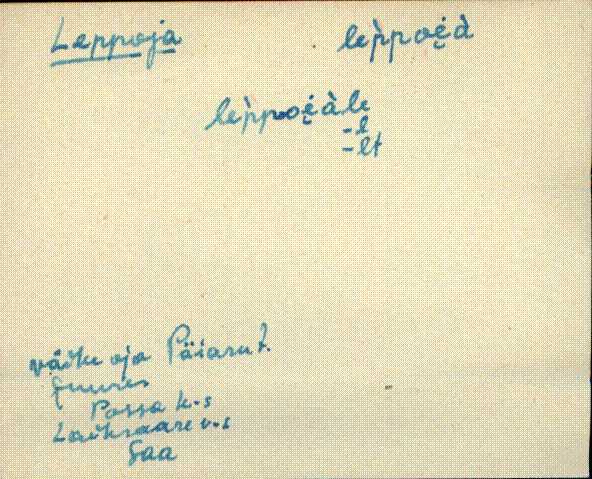 Leppoja lep̀poi̯à
lep̀poi̯àle
-l
-lt
väike oja Päiaru t.
juures
Possa k-s
Laiksaare v-s
Saa